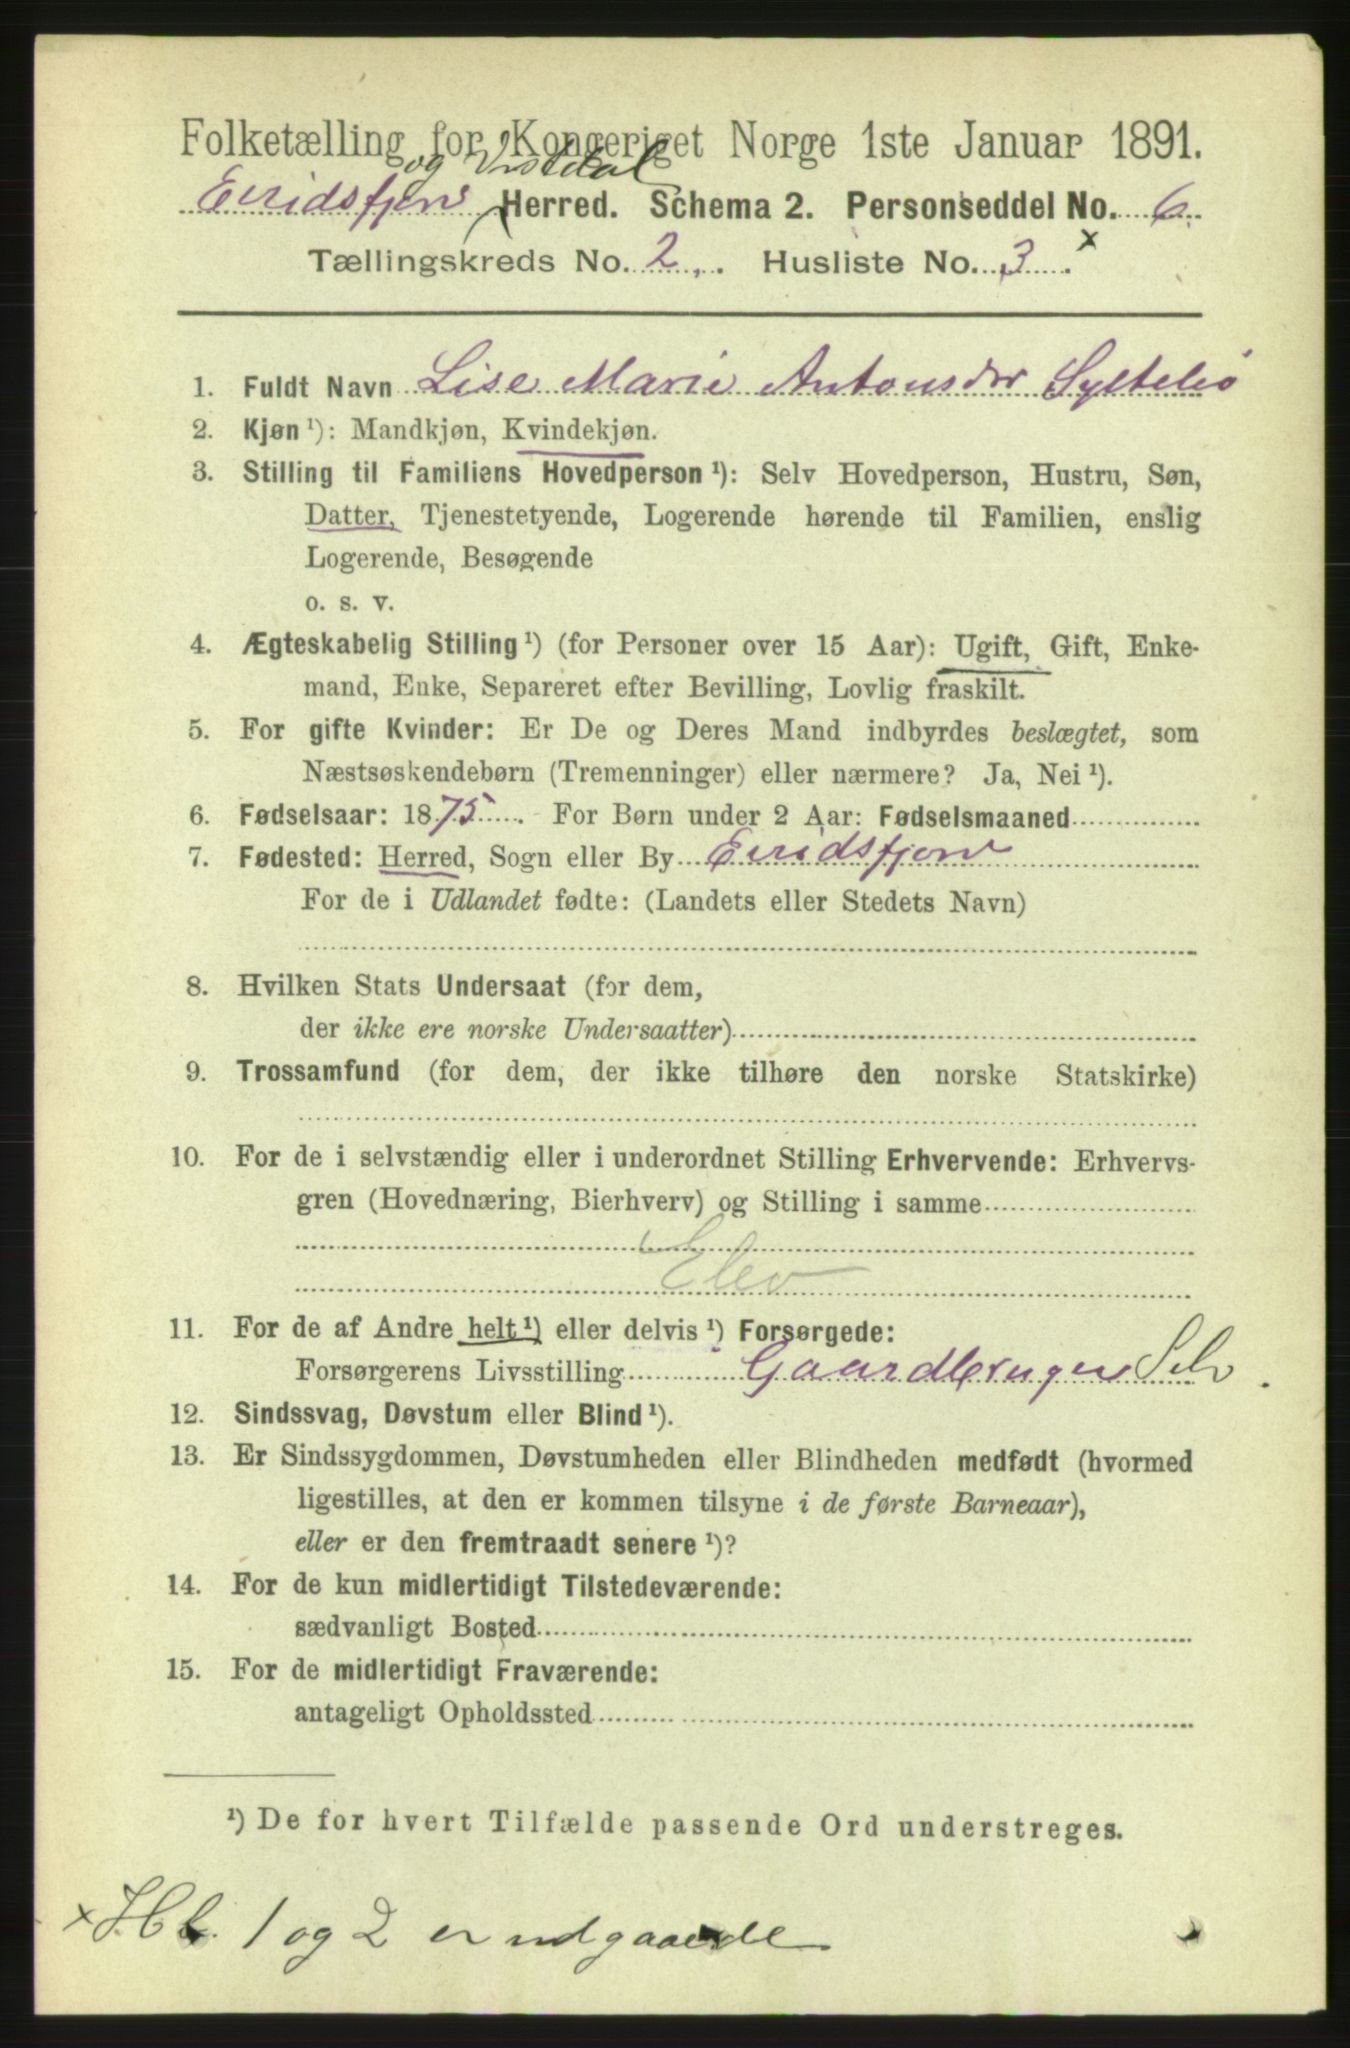 Folketælling for Kongeriget Norge 1ste Januar 1891.
og Vistdal
Eiridsfjord Herred. Schema 2. Personseddel No. 6.
Tællingskreds No. 2. Husliste No. 3 . x
1. Fuldt Navn Lise Marie Antonsdtr Syltebø
2. Kjøn ¹): Mandkjøn, Kvindekjøn.
3. Stilling til Familiens Hovedperson ¹): Selv Hovedperson, Hustru, Søn,
Datter, Tjenestetyende, Logerende hørende til Familien, enslig
Logerende, Besøgende
o. s. v.
4. Ægteskabelig Stilling ¹) (for Personer over 15 Aar): Ugift, Gift, Enke-
mand, Enke, Separeret efter Bevilling, Lovlig fraskilt.
5. For gifte Kvinder: Er De og Deres Mand indbyrdes beslægtet, som
Næstsøskendebørn (Tremenninger) eller nærmere? Ja, Nei ¹).
6. Fødselsaar: 1875. For Børn under 2 Aar: Fødselsmaaned
7. Fødested: Herred, Sogn eller By Eiridsfjord
For de i Udlandet fødte: (Landets eller Stedets Navn)
8. Hvilken Stats Undersaat (for dem,
der ikke ere norske Undersaatter)
9. Trossamfund (for dem, der ikke tilhøre den norske Statskirke)
10. For de i selvstændig eller i underordnet Stilling Erhvervende: Erhvervs-
gren (Hovednæring, Bierhverv) og Stilling i samme
Elev
11. For de af Andre helt ¹) eller delvis ¹) Forsørgede:
Forsørgerens Livsstilling Gaardbruger Selv.
12. Sindssvag, Døvstum eller Blind ¹).
13. Er Sindssygdommen, Døvstumheden eller Blindheden medfødt (hvormed
ligestilles, at den er kommen tilsyne i de første Barneaar),
eller er den fremtraadt senere ¹)?
14. For de kun midlertidigt Tilstedeværende:
sædvanligt Bosted
15. For de midlertidigt Fraværende:
antageligt Opholdssted
¹) De for hvert Tilfælde passende Ord understreges.
x Hl. 1 og 2 er udgaaede